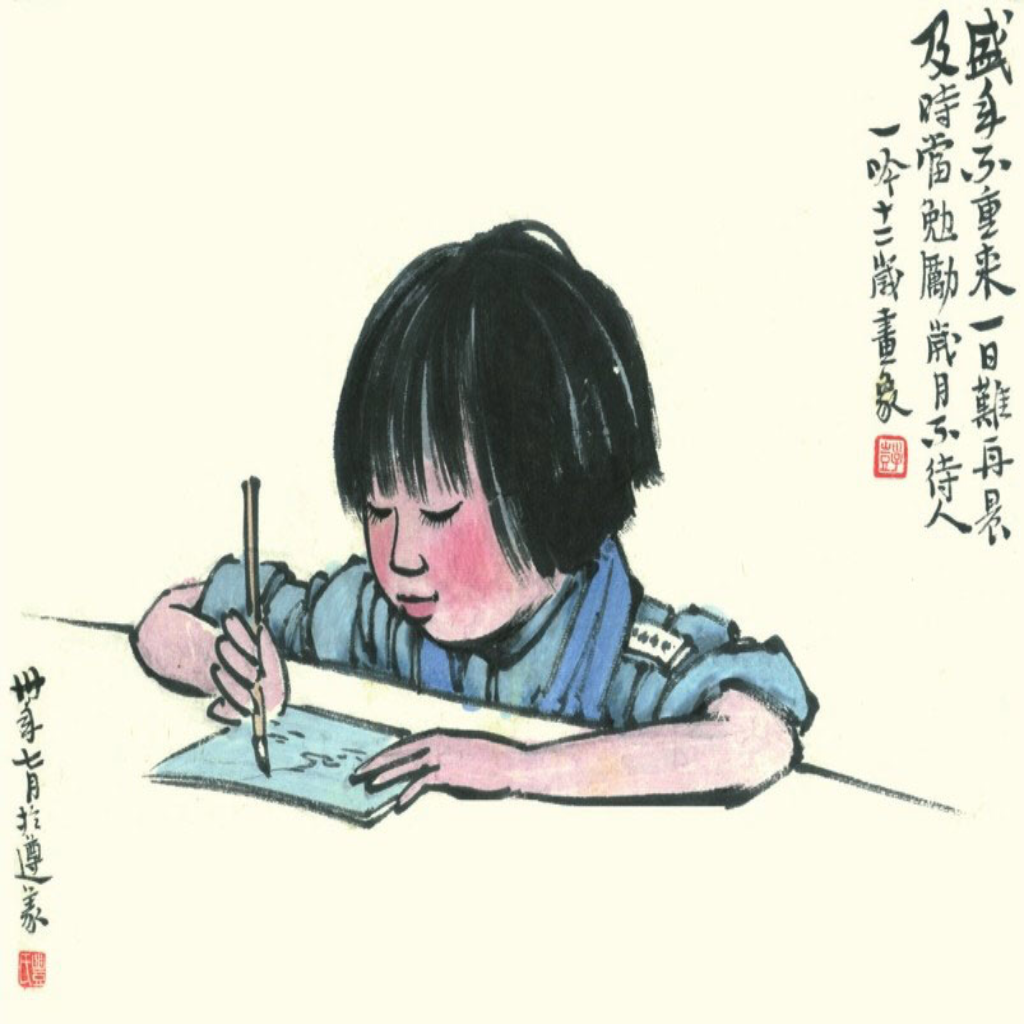 盛年不重来一日難再晨
及時當勉勵歲月不待人
一吟十二歲畫象
卅年七月於遵義